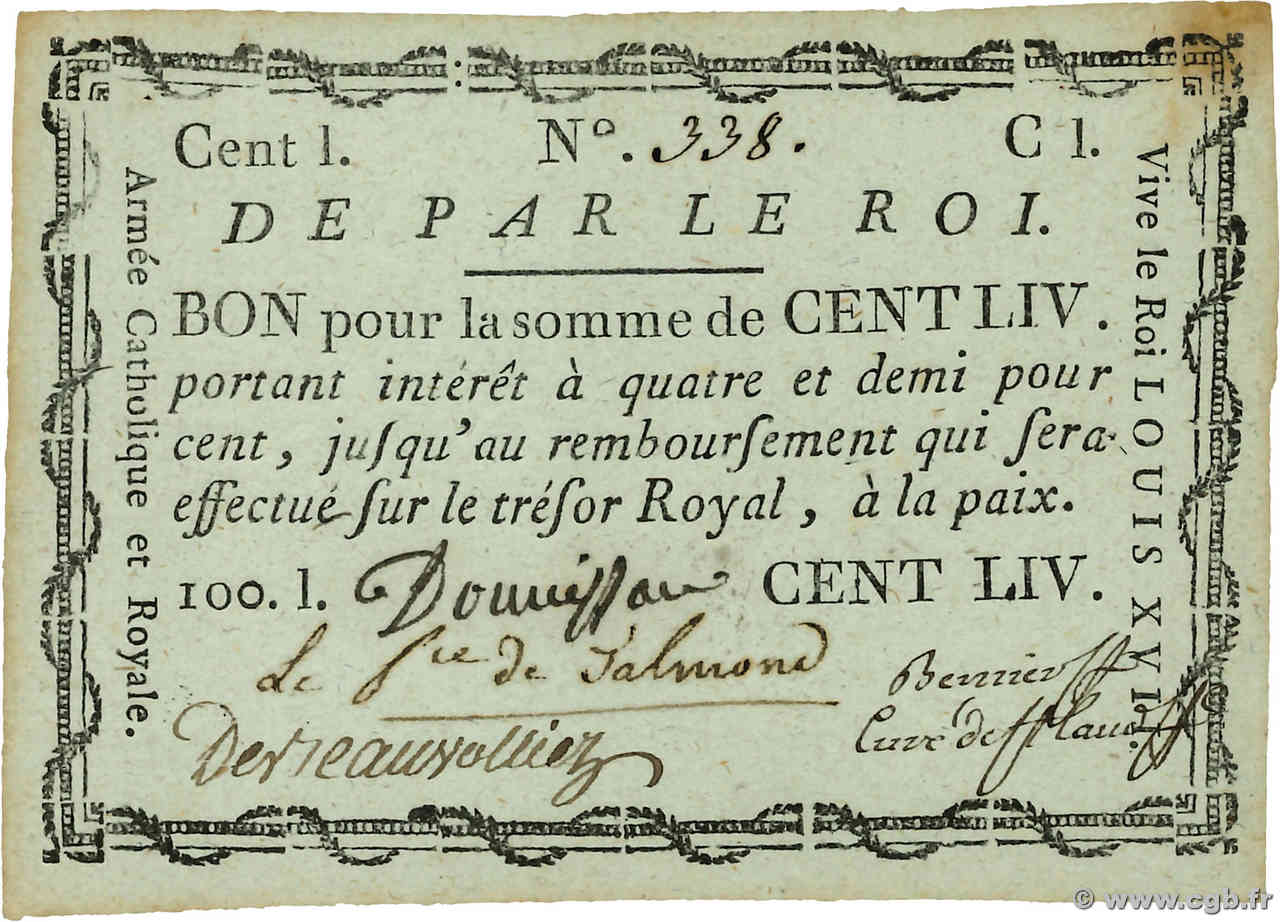 Cent l. N°. 338. C l.
DE PAR LE ROI.
BON pour la somme de CENT LIV.
portant intérêt à quatre et demi pour
cent, juſqu'au rembourſement qui ſera
effectué ſur le tréſor Royal, à la paix.
100. l. Donnissan CENT LIV.
Le Pce de Talmond
Bernier
Desbeauvolliez
Curé de St Laud
Armée Catholique et Royale.
Vive le Roi LOUIS XVII.
© www.cgb.fr